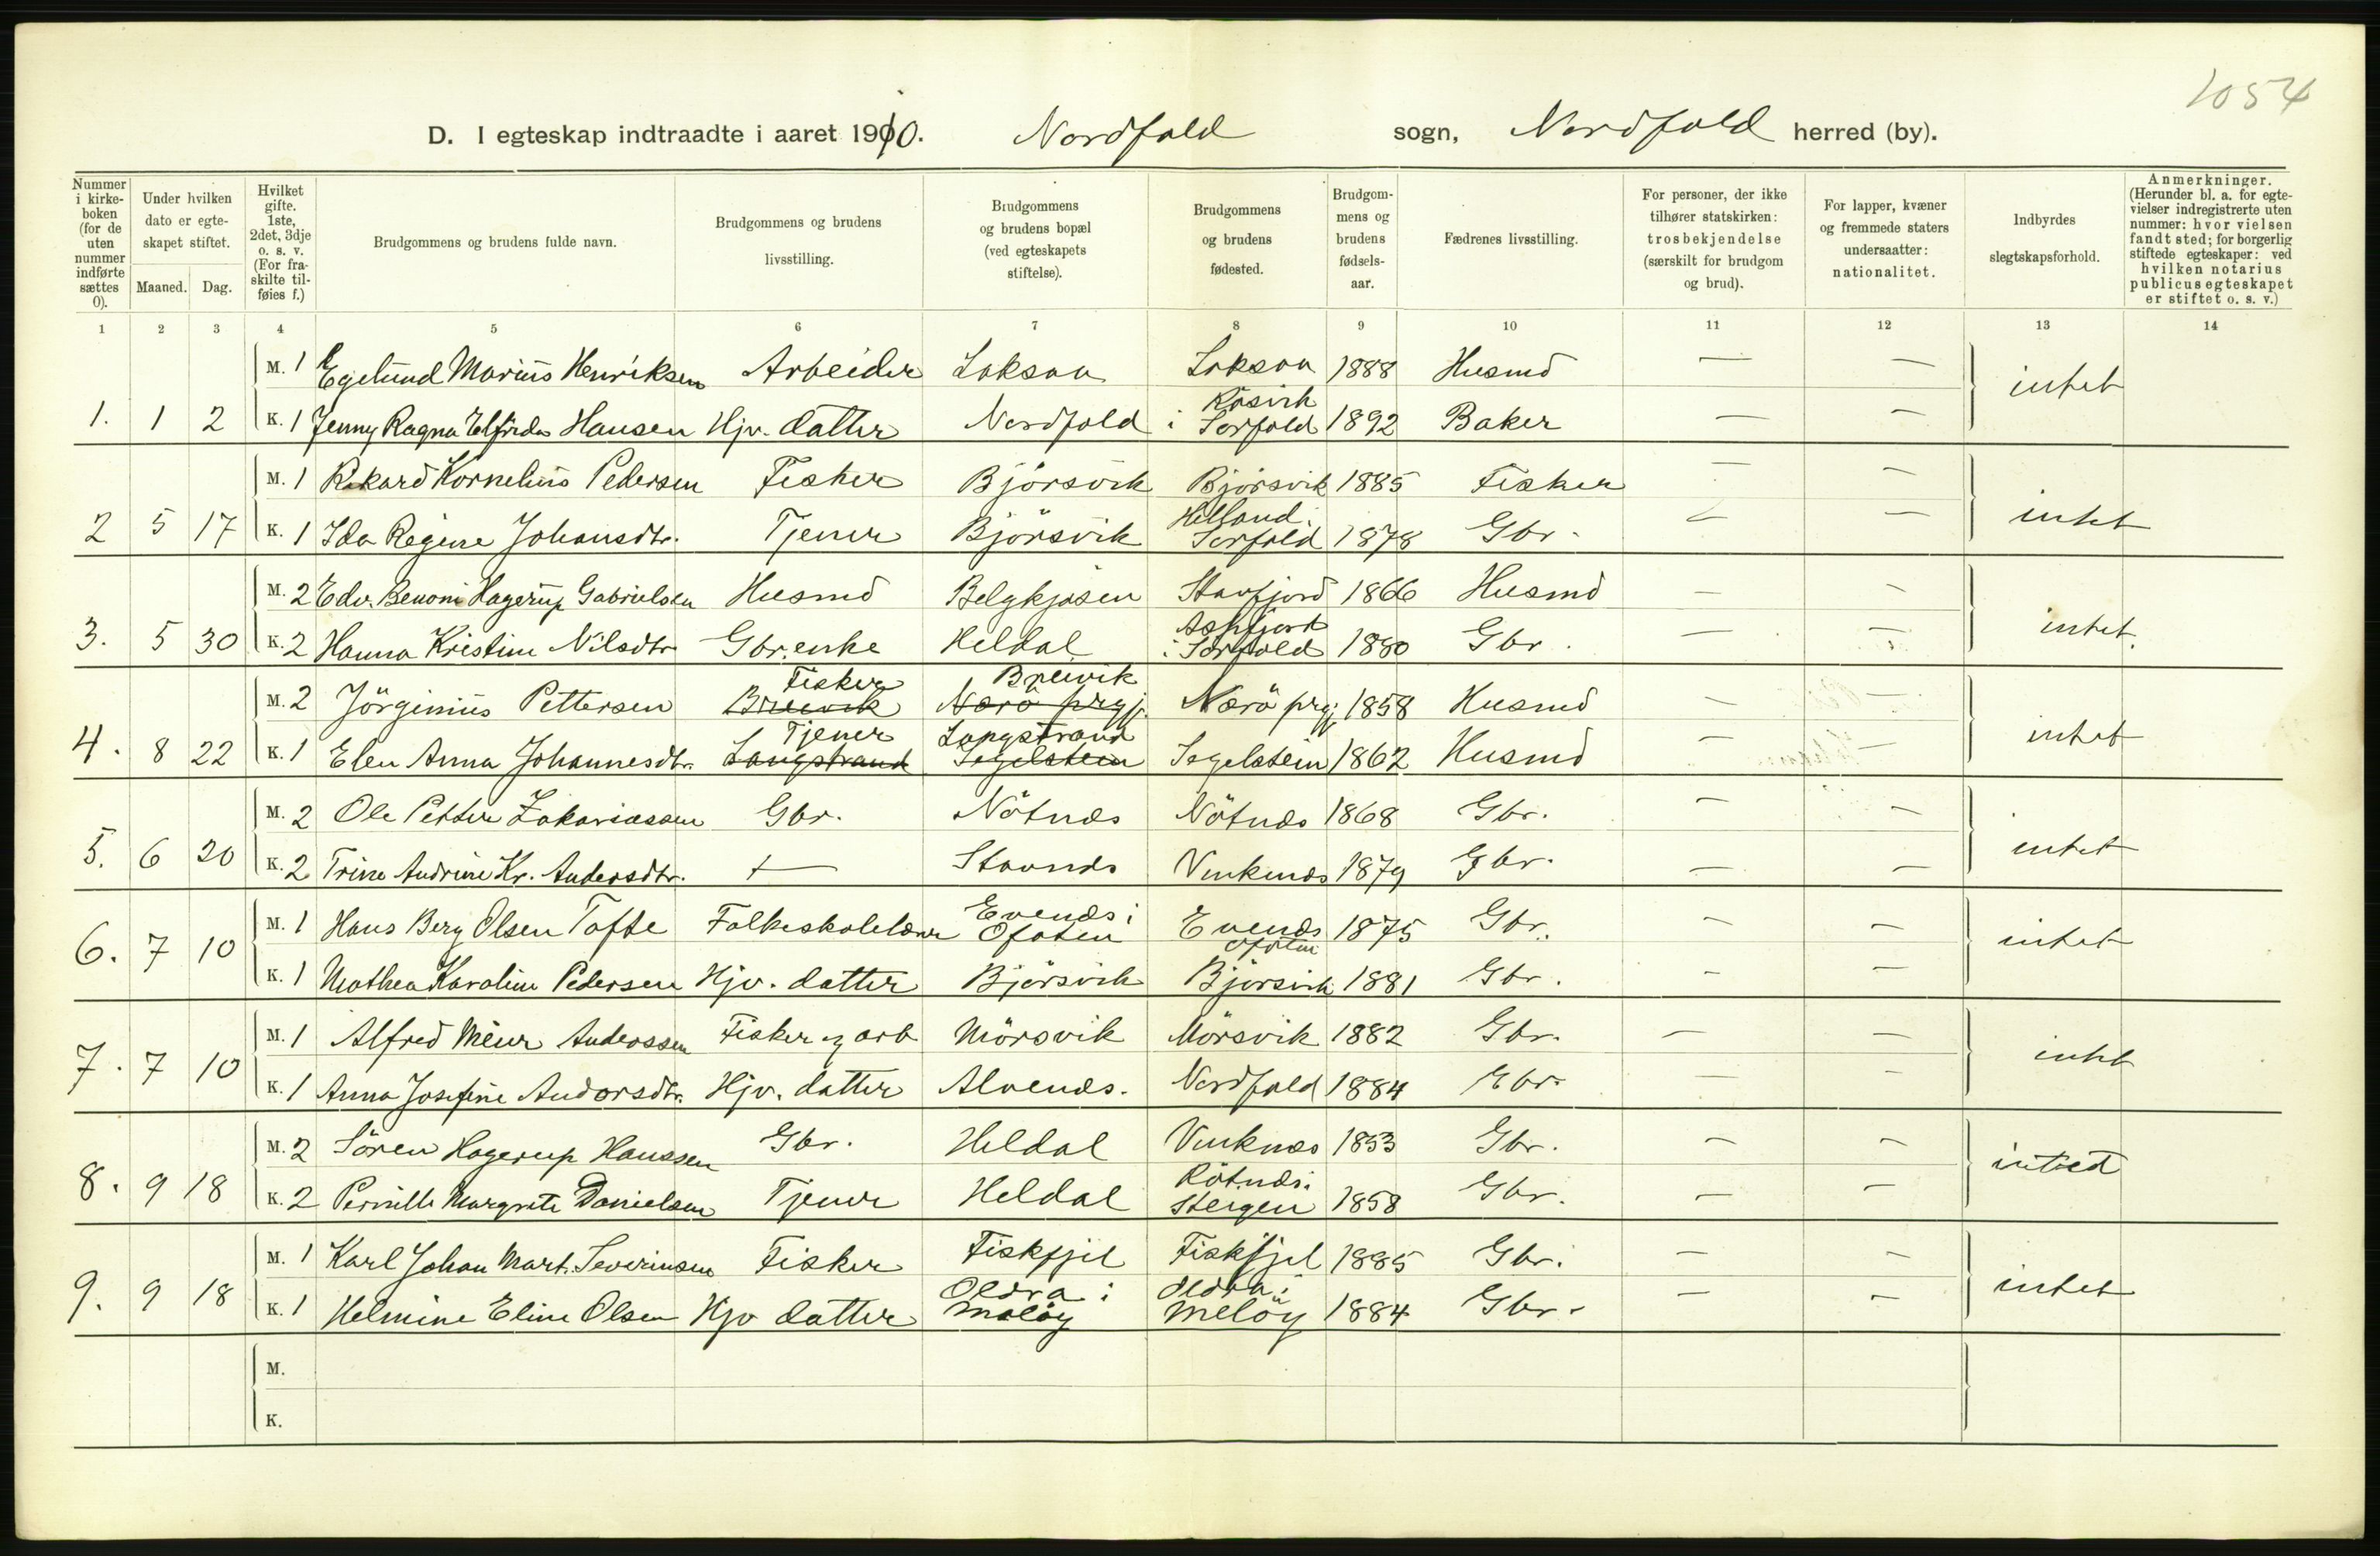 1054
D. I egteskap indtraadte i aaret 1910. Nordfold sogn, Nordfold herred (by).
Nummer i kirkeboken (for de uten nummer indførte sættes 0).
Under hvilken dato er egteskapet stiftet.
Maaned. Dag.
Hvilket gifte. 1ste, 2det, 3dje o. s. v. (For fraskilte tilføies f.)
Brudgommens og brudens fulde navn.
Brudgommens og brudens livsstilling.
Brudgommens og brudens bopæl (ved egteskapets stiftelse).
Brudgommens og brudens fødested.
Brudgommens og brudens fødselsaar.
Fædrenes livsstilling.
For personer, der ikke tilhører statskirken: trosbekjendelse (særskilt for brudgom og brud).
For lapper, kvæner og fremmede staters undersaatter: nationalitet.
Indbyrdes slegtskapsforhold.
Anmerkninger. (Herunder bl. a. for egtevielser indregistrerte uten nummer: hvor vielsen fandt sted; for borgerlig stiftede egteskaper: ved hvilken notarius publicus egteskapet er stiftet o. s. v.)
1 2 3 4 5 6 7 8 9 10 11 12 13 14
M. 1 Egelund Marius Henriksen Arbeider Laksaa Laksaa 1888 Husmd — — intet
1. 1 2 K. 1 Jenny Ragna Elfrida Hansen Hjv. datter Nordfold Røsvik i Sørfold 1892 Baker — —
M. 1 Rikard Kornelius Pedersen Fisker Bjørsvik Bjørsvik 1885 Fisker — — intet
2 5 17 K. 1 Ida Regine Johansdtr. Tjener Bjørsvik Helland i Sørfold 1878 Gbr. — —
M. 2 Edv. Benoni Hagerup Gabrielsen Husmd Belgkjosen Storfjord 1866 Husmd — — intet.
3. 5 30 K. 2 Hanna Kristine Nilsdtr Gbr. enke Heldal Aspfjord i Sørfold 1880 Gbr. — —
M. 2 Jörginius Pettersen Breivik Fisker Nærö prgj. Breivik Nærö prgj 1858 Husmd — — intet
4. 8 22 K. 1 Elen Anna Johannesdtr. Langstrand Tjener Segelstein Langstrand Segelstein 1862 Husmd — —
M. 2 Ole Petter Zakariassen Gbr. Nötnæs Nötnæs 1868 Gbr. — — intet
5. 6 20 K. 2 Trine Andrine Kr. Andersdtr. — Stavnæs Vinknæs 1879 Gbr. — —
M. 1 Hans Berg Olsen Tofte Folkeskolelærer Evenæs i Ofoten Evenæs Ofoten 1875 Gbr. — — intet
6. 7 10 K. 1 Mathea Karoline Pedersen Hjv. datter Bjørsvik Bjørsvik 1881 Gbr. — —
M. 1 Alfred Meier Anderssen Fisker og arb Mörsvik Mörsvik 1882 Gbr. — — intet
7. 7 10 K. 1 Anna Josefine Andorsdtr. Hjv. datter Alvenæs. Nordfold 1884 Gbr. — —
M. 2 Sören Hagerup Hanssen Gbr. Heldal Vinknæs 1853 Gbr. — — intet
8. 9 18 K. 2 Pernille Margrete Danielsen Tjener Heldal Rötnæs i Steigen 1858 Gbr. — —
M. 1 Karl Johan Mart. Severinsen Fisker Fiskfjel Fiskfjel 1885 Gbr. — — intet
9. 9 18 K. 1 Helmine Eline Olsen Hjv datter Oldra i Meløy Oldra i Meløy 1884 Gbr. — —
M.
K.